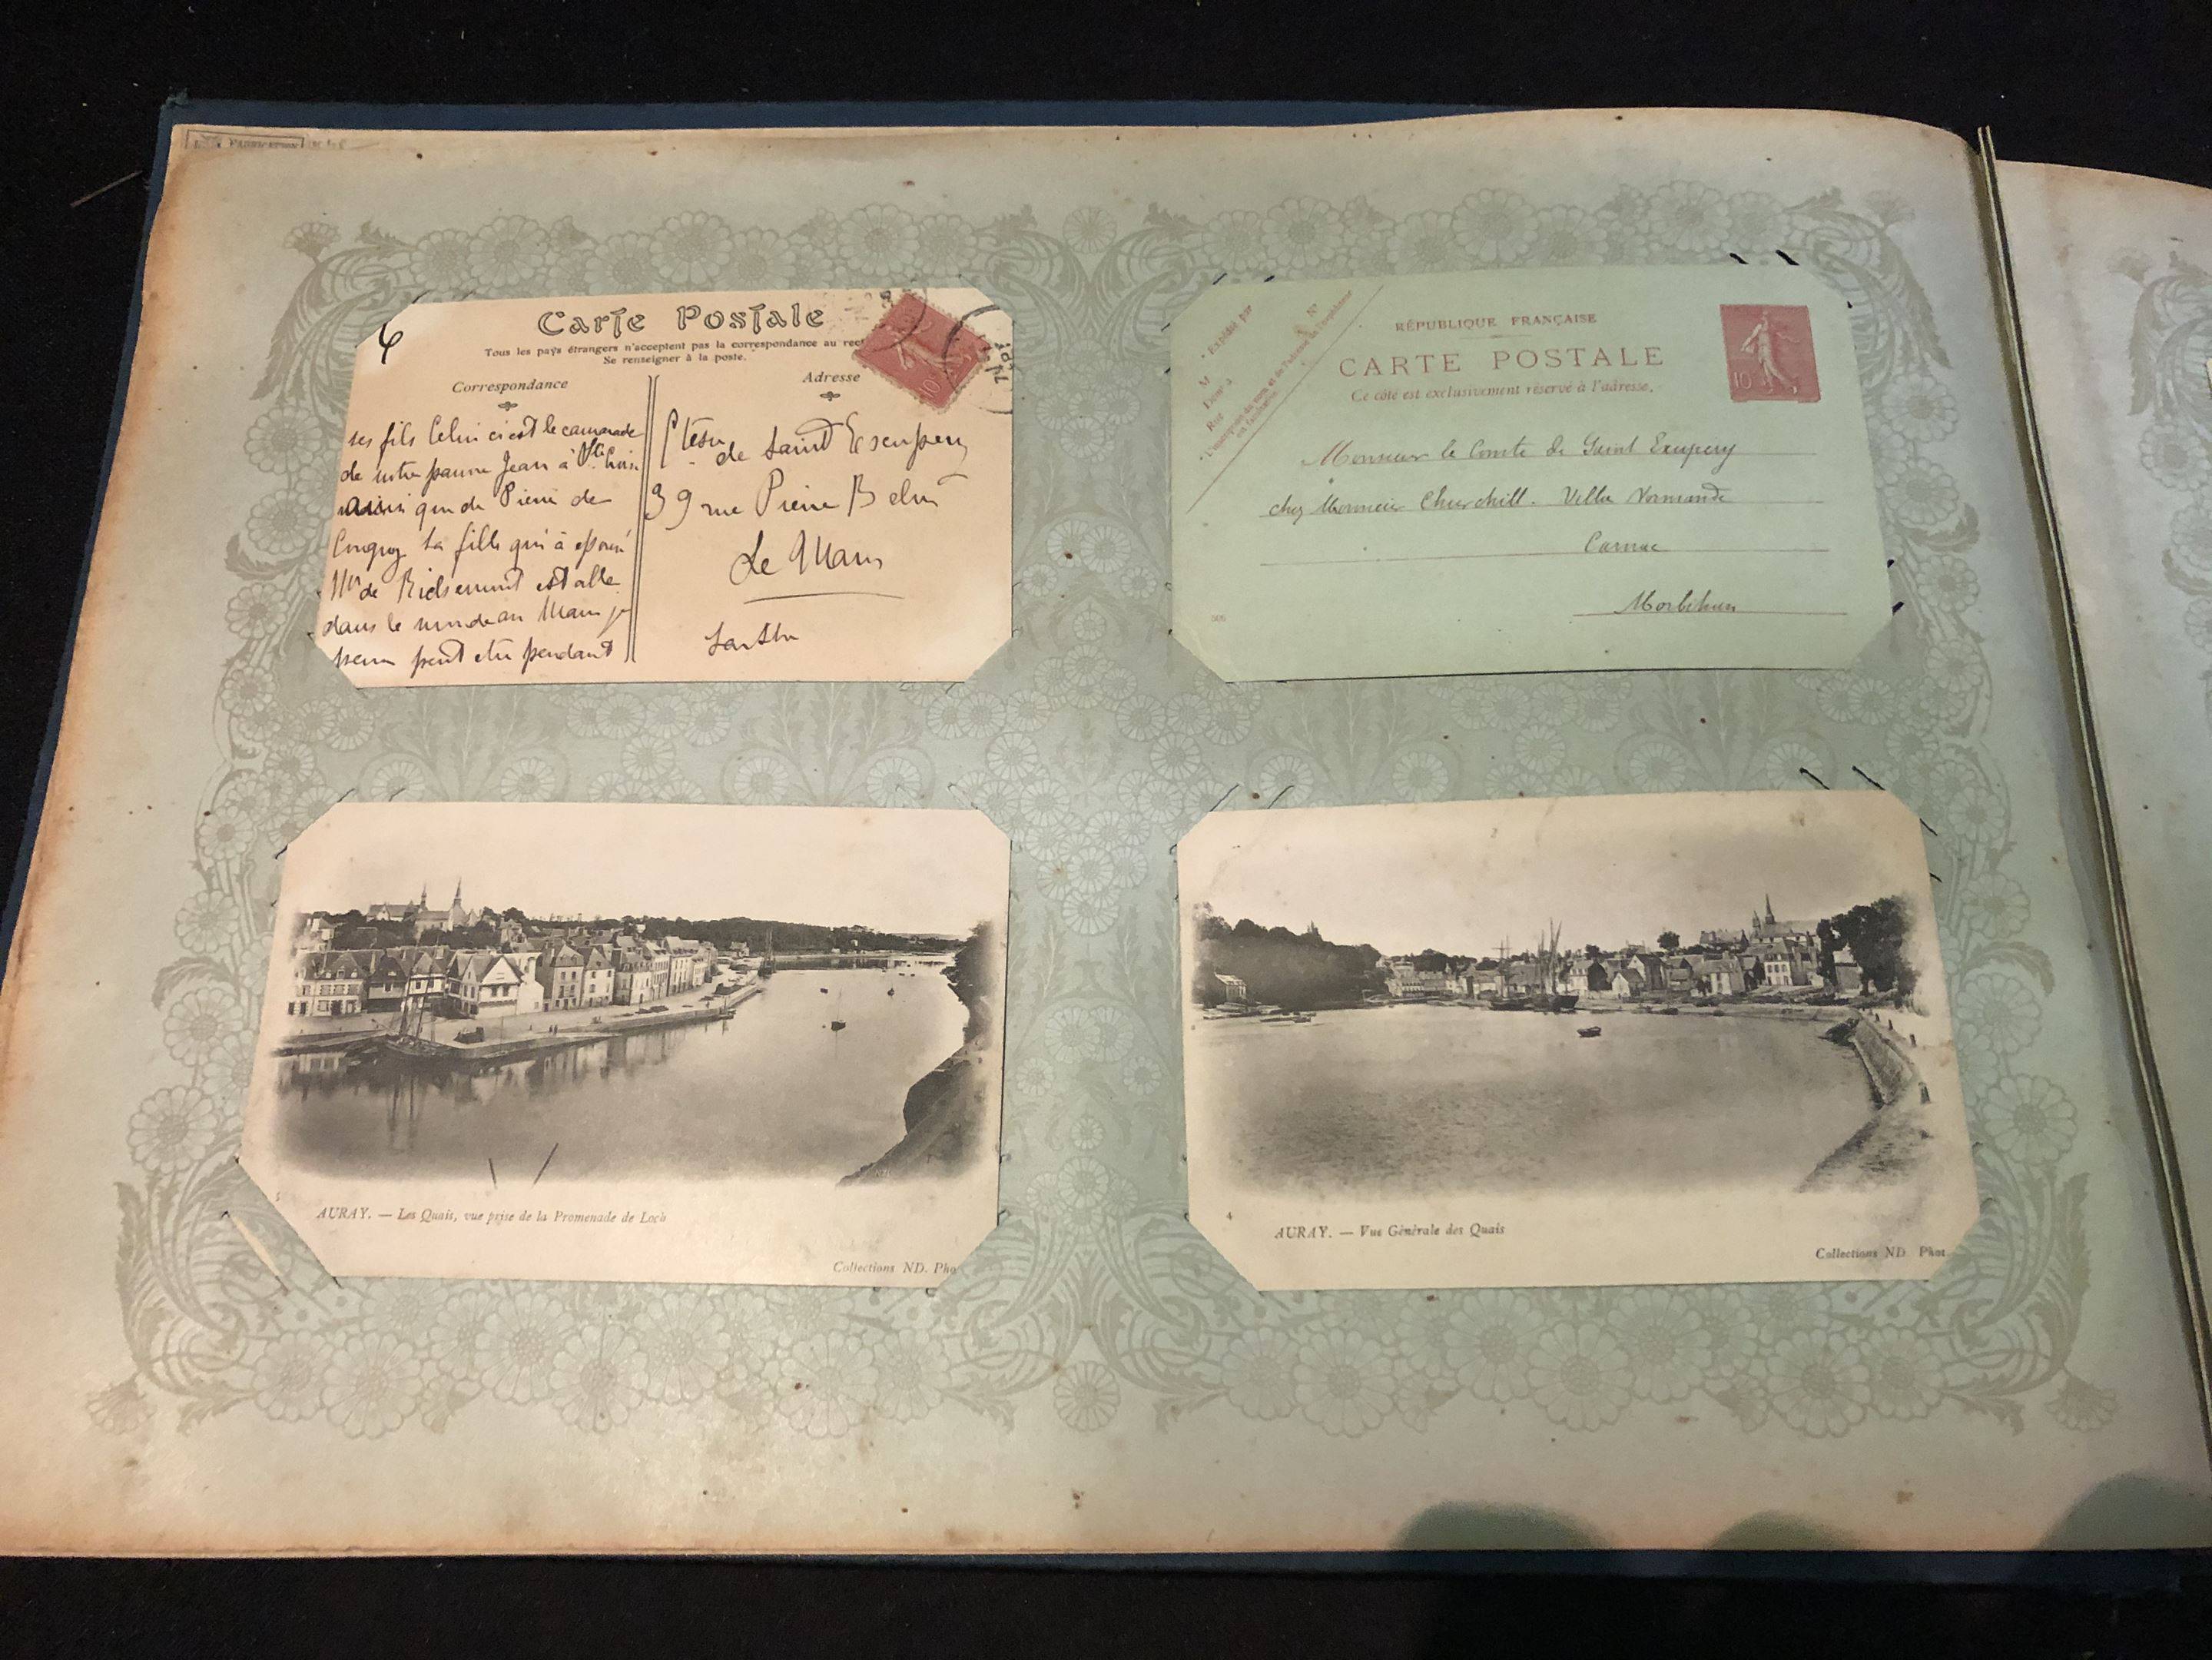 FABRICATION
6
Carte Postale
Tous les pays étrangers n'acceptent pas la correspondance au rec
Se renseigner à la poste.
Correspondance
Adresse
10
ses fils Celui ci est le camarade
de notre pauvre Jean à Ste Croix
ainsi que de Pierre de
la fille qui a épousé
Mr de est allé
dans le monde au Mans je
pense peut etre pendant
Ctesse
de Saint Exeupery
39 rue Pierre Belon
Le Mans
Sarthe
Expédié par
M
Rue
N°
RÉPUBLIQUE FRANÇAISE
CARTE POSTALE
Ce côté est exclusivement réservé à l'adresse.
10
Monsieur le Comte de Saint Exupery
chez Monsieur Churchill. Villa Normande
Carnac
Morbihan
5
AURAY. — Les Quais, vue prise de la Promenade de Loch
Collections ND. Pho
4
AURAY. — Vue Générale des Quais
Collections ND. Phot